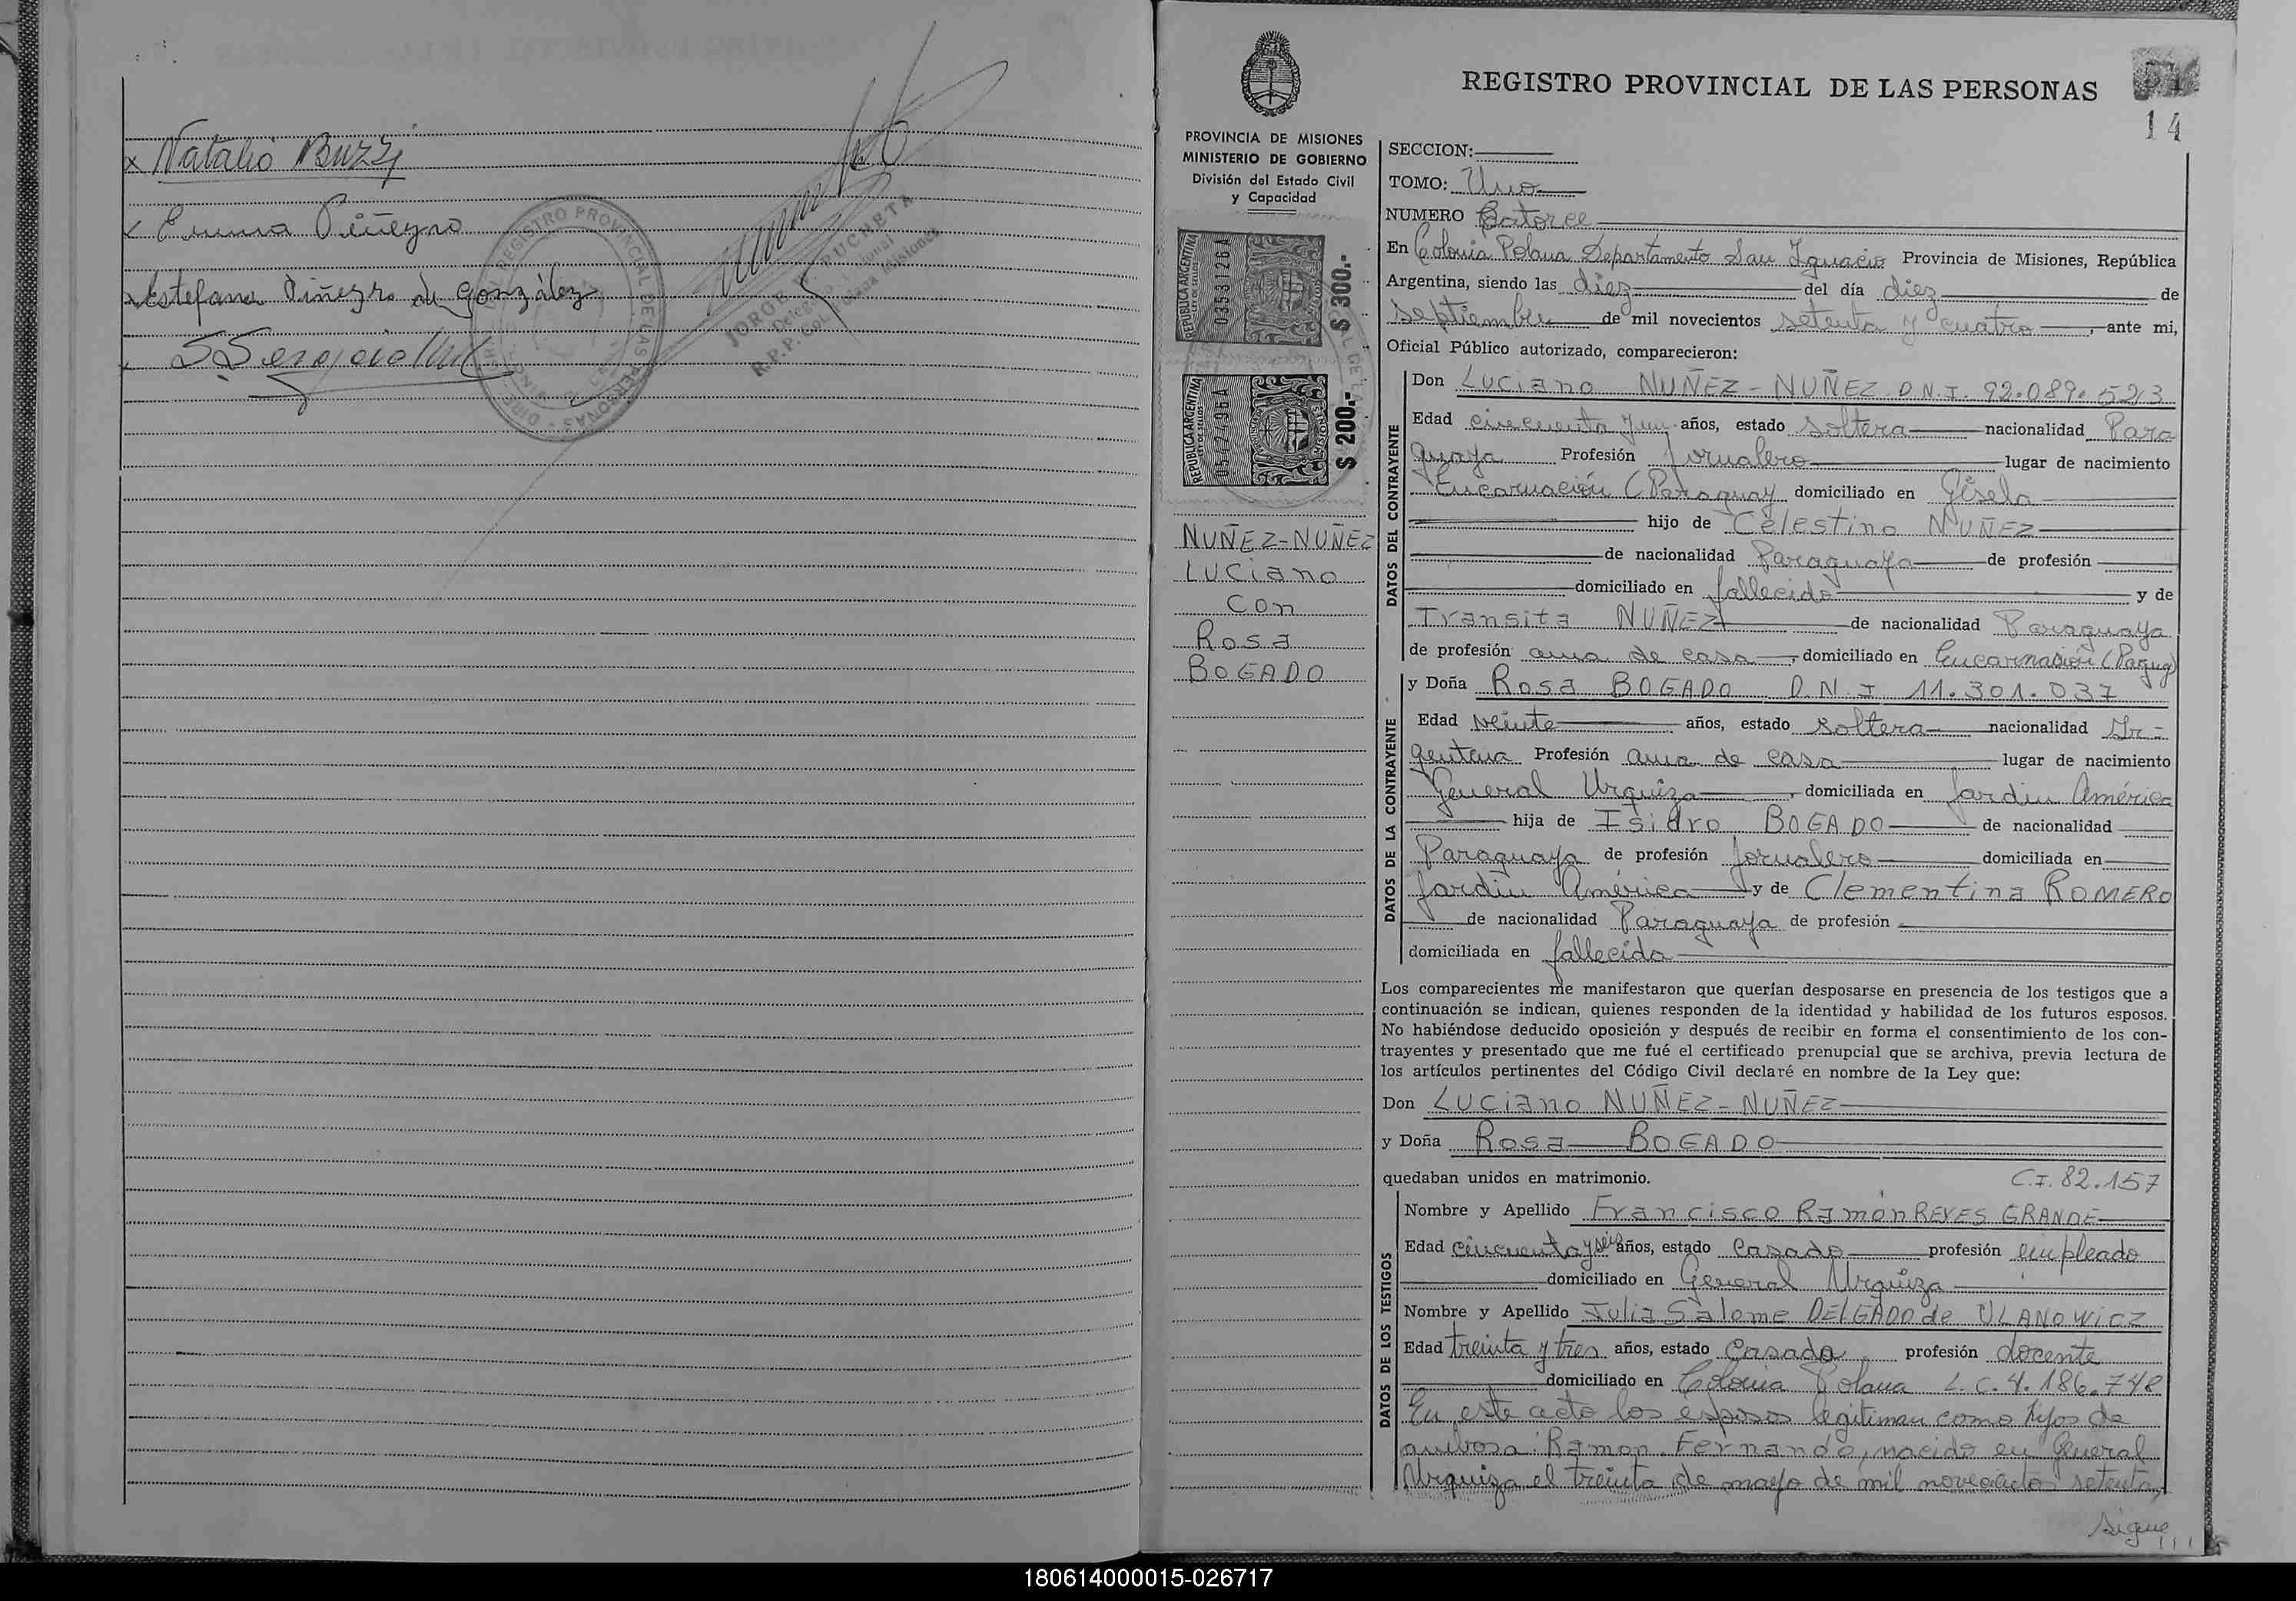 x Natalio Buzzi
x Emma Piñeyro
x Estefana Piñeyro de González
REGISTRO PROVINCIAL DE LAS PERSONAS
JORGE PUCHETA
R.P.P. Col. Polana Misiones
REGISTRO PROVINCIAL DE LAS PERSONAS
14
PROVINCIA DE MISIONES
MINISTERIO DE GOBIERNO
División del Estado Civil
y Capacidad
REPUBLICA ARGENTINA
LEY DE SELLOS
0353126A
$ 300.-
REPUBLICA ARGENTINA
LEY DE SELLOS
0572495A
$ 200.-
NUÑEZ-NUÑEZ
LUCiano
Con
Rosa
BOGADO
SECCION:
TOMO: Uno
NUMERO Catorce
En Colonia Polana Departamento San Ignacio Provincia de Misiones, República
Argentina, siendo las diez del día diez de
Septiembre de mil novecientos setenta y cuatro, ante mi,
Oficial Público autorizado, comparecieron:
DATOS DEL CONTRAYENTE
Don Luciano NUÑEZ-NUÑEZ D.N.I. 92.089.523
Edad cincuenta y un años, estado soltera nacionalidad Para
guaya Profesión Jornalero lugar de nacimiento
Encarnación (Paraguay domiciliado en Gisela
hijo de Celestino NUÑEZ
de nacionalidad Paraguaya de profesión
domiciliado en fallecido y de
Transita NUÑEZ de nacionalidad Paraguaya
de profesión ama de casa, domiciliado en Encarnación (Parguy)
DATOS DE LA CONTRAYENTE
y Doña Rosa BOGADO D.N.I 11.301.037
Edad veinte años, estado soltera nacionalidad Ar-
gentina Profesión ama de casa lugar de nacimiento
General Urquiza, domiciliada en Jardín América
hija de Isidro BOGADO de nacionalidad
Paraguaya de profesión Jornalero domiciliada en
Jardín América y de Clementina ROMERO
de nacionalidad Paraguaya de profesión
domiciliada en fallecida
Los comparecientes me manifestaron que querían desposarse en presencia de los testigos que a
continuación se indican, quienes responden de la identidad y habilidad de los futuros esposos.
No habiéndose deducido oposición y después de recibir en forma el consentimiento de los con-
trayentes y presentado que me fué el certificado prenupcial que se archiva, previa lectura de
los artículos pertinentes del Código Civil declaré en nombre de la Ley que:
Don LUCiano NUÑEZ-NUÑEZ
y Doña Rosa BOGADO
quedaban unidos en matrimonio. C.I. 82.157
DATOS DE LOS TESTIGOS
Nombre y Apellido Francisco Ramón REYES GRANDE
Edad cincuenta y seis años, estado casado profesión empleado
domiciliado en General Urquiza
Nombre y Apellido Julia Salome DELGADO de ULANOWICZ
Edad treinta y tres años, estado casada profesión docente
domiciliado en Colonia Polana L.C. 4.186.748
En este acto los esposos legitiman como hijos de
ambos a: Ramon Fernando, nacido en General
Urquiza el treinta de mayo de mil novecientos setenta,
Sigue///
180614000015-026717